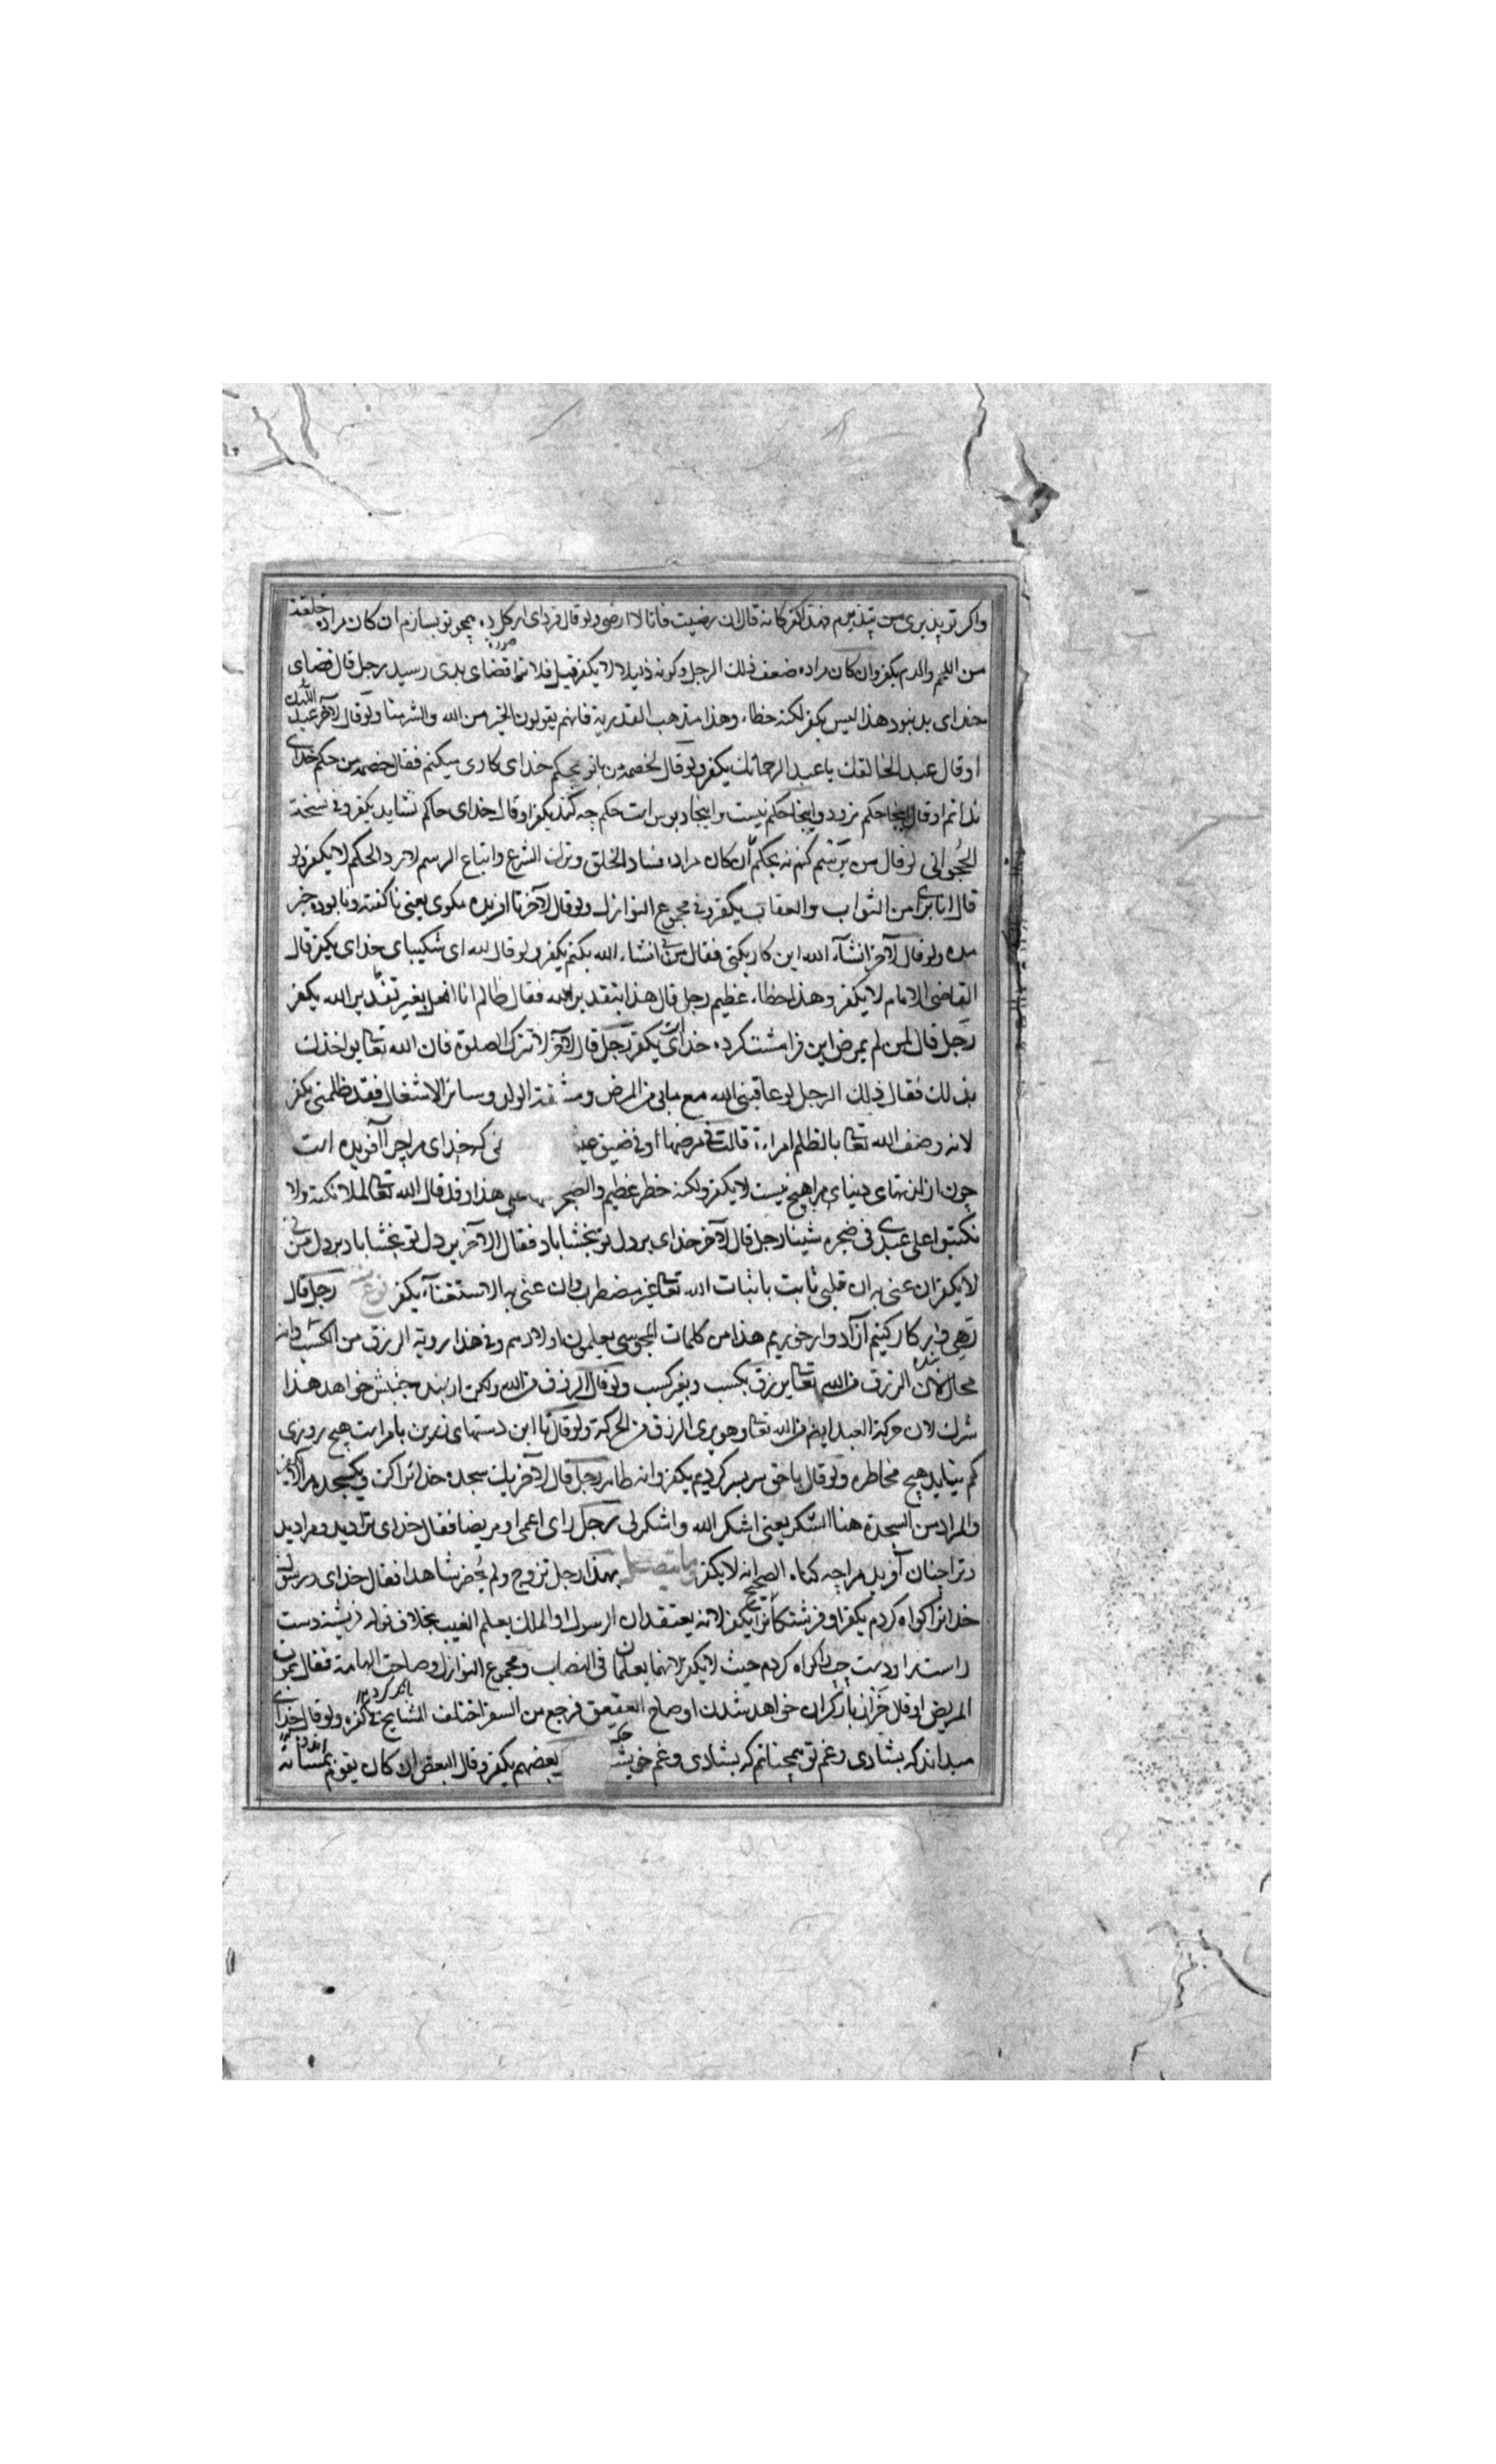 واكر تو پذيری من نپذيرم فهذا كفر كانه قال ان رضيت فانا لا ارضی ولو قال فردای از كل همچو تو بسازم ان كان مراده خلقة
من اللحم والدم يكفر وان كان مراده ضعف ذلك الرجل وكونه ذليلا لا يكفر قيل فلانرا قضای بدی رسيد رجل قال قضای
خدای بد نبود هذا ليس بكفر لكنه خطاء وهذا مذهب القدرية فانهم يقولون الخير من الله والشر منا ولو قال لآخر عبد اللهك
او قال عبد الخالقك يا عبد الرحمانك يكفر ولو قال لخصمه من با تو بحكم خدای كاری ميكنم فقال خصمه من حكم خدای
ندانم او قال اينجا حكم نرود واينجا حكم نيست واينجا دبوس است حكم چه كند يكفر او قال خدای حاكم نشايد يكفر وفی نسخة
الحجوانی لو قال من برسم كنم نه بحكم ان كان مراده فساد الخلق وترك الشرع واتباع الرسم لا رد الحكم لا يكفر ولو
قال انا بری من الثواب والعقاب يكفر وفی مجموع النوازل ولو قال لآخر نا افريده مكوی يعنی ناكفته ونا بوده خبر
مده ولو قال لآخر انشآء الله اين كار بكنی فقال من بی انشاء الله بكنم يكفر ولو قال لله ای شكيبای خدای يكفر قال
القاضی الامام لا يكفر وهذا خطاء عظيم رجل قال هذا بتقدير الله فقال ظالم انا افعل بغير تقدير الله يكفر
رجل قال لمن لم يمرض اين فرامشت كرده خدای است يكفر رجل قال لآخر لا تترك الصلوة فان الله تعا يواخذك
بذلك فقال ذلك الرجل لو عاقبنی الله مع ما بی من المرض ومشقة الولد وسائر الاشغال فقد ظلمنی يكفر
لانه وصف الله تعا بالظلم امراءة قالت فی مرضها او فی ضيق كه خدای مرا چرا آفريده است
چون از لذتهای دنيای مرا هيچ نيست لا يكفر ولكنه خطر عظيم والضجر علی هذا وقد قال الله تعا لملائكته ولا
تكتبوا علی عبدی فی ضجره شيئا رجل قال لآخر خدای بر دل تو بخشاياد فقال الاخر بر دل تو بخشاياد بر دل من نی
لا يكفر ان عنی به ان قلبی ثابت باثبات الله تعا غير مضطرب وان عنی به الاستغناء يكفر رجل قال
رهی وار كار كنيم آزاد وار خوريم هذا من كلمات المجوسی يعلمون اولادهم وفی هذا رؤية الرزق من الكسب وانه
محال لان الرزق من الله تعا يرزق بكسب وبغير كسب ولو قال الرزق من الله ولكن از بنده جنبش خواهد هذا
شرك لان حركة العبد ايضا من الله تعا وهو يری الرزق من الحركة ولو قال تا اين دستهای زرين با مراست هيچ روزی
كم نيايد هيچ مخاطره ولو قال با حق سر بسر كرديم يكفر وانه ظاهر رجل قال لآخر يك سجده خدا ترا كن ويك سجده مرا لا يكفر
والمراد من السجدة هنا الشكر يعنی اشكر الله واشكر لی رجل رای اعمی او مريضا فقال خدای ترا ديد ومرا ديد
وترا چنان آفريد مرا چه كناه الصحيح انه لا يكفر بهذا رجل تزوج ولم يحضر شاهدا فقال خدای ورسول
خدا را كواه كردم يكفر او فرشتكانرا يكفر لانه يعتقد ان الرسول او الملك يعلم الغيب بخلاف قوله فرشته دست
راست را ودست چپ را كواه كردم حيث لا يكفر لانهما يعلمان فی النصاب ومجموع النوازل وصاحت الهامة فقال يموت
المريض او قال خر از باركران خواهد شدن او صاح العقعق فرجع من السفر اختلف المشايخ فی كفره ولو قال خدای
ميداند كه بشادی وغم تو همچنانم كه بشادی وغم خويش بعضهم يكفر وقال البعض ان كان يقوم بمسائة